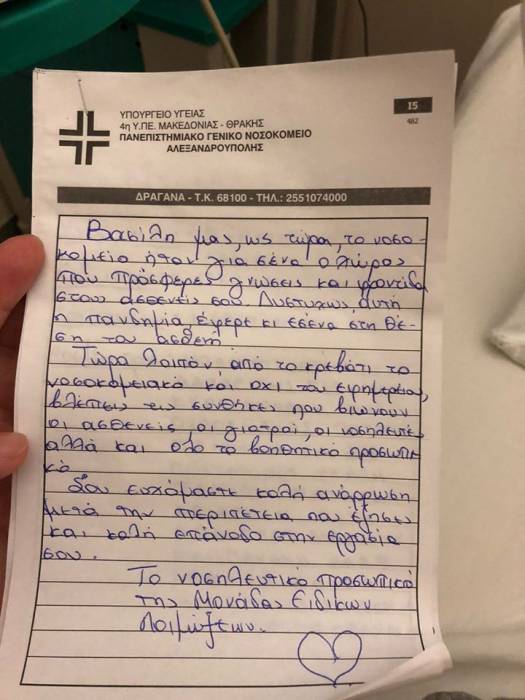 15
482
ΥΠΟΥΡΓΕΙΟ ΥΓΕΙΑΣ
4η Υ.ΠΕ. ΜΑΚΕΔΟΝΙΑΣ - ΘΡΑΚΗΣ
ΠΑΝΕΠΙΣΤΗΜΙΑΚΟ ΓΕΝΙΚΟ ΝΟΣΟΚΟΜΕΙΟ
ΑΛΕΞΑΝΔΡΟΥΠΟΛΗΣ
ΔΡΑΓΑΝΑ - Τ.Κ. 68100 - ΤΗΛ.: 2551074000
Βασίλη μας, ως τώρα, το νοσο-
κομείο ήταν για σένα ο χώρος
που πρόσφερες γνώσεις και φροντίδα
στους ασθενείς σου. Δυστυχώς, αυτή
η πανδημία, έφερε κι εσένα στη θέ-
ση του ασθενή.
Τώρα λοιπόν, από το κρεβάτι το
νοσοκομειακό και όχι του εφημερείου,
βλέπεις τις συνθήκες που βιώνουν
οι ασθενείς, οι γιατροί, οι νοσηλευτές
αλλά και όλο το βοηθητικό προσωπι-
κό.
Σου ευχόμαστε καλή ανάρρωση
μετά την περιπέτεια που έζησες
και καλή επάνοδο στην εργασία
σου.
Το νοσηλευτικό προσωπικό
της Μονάδας Ειδικών
Λοιμώξεων.